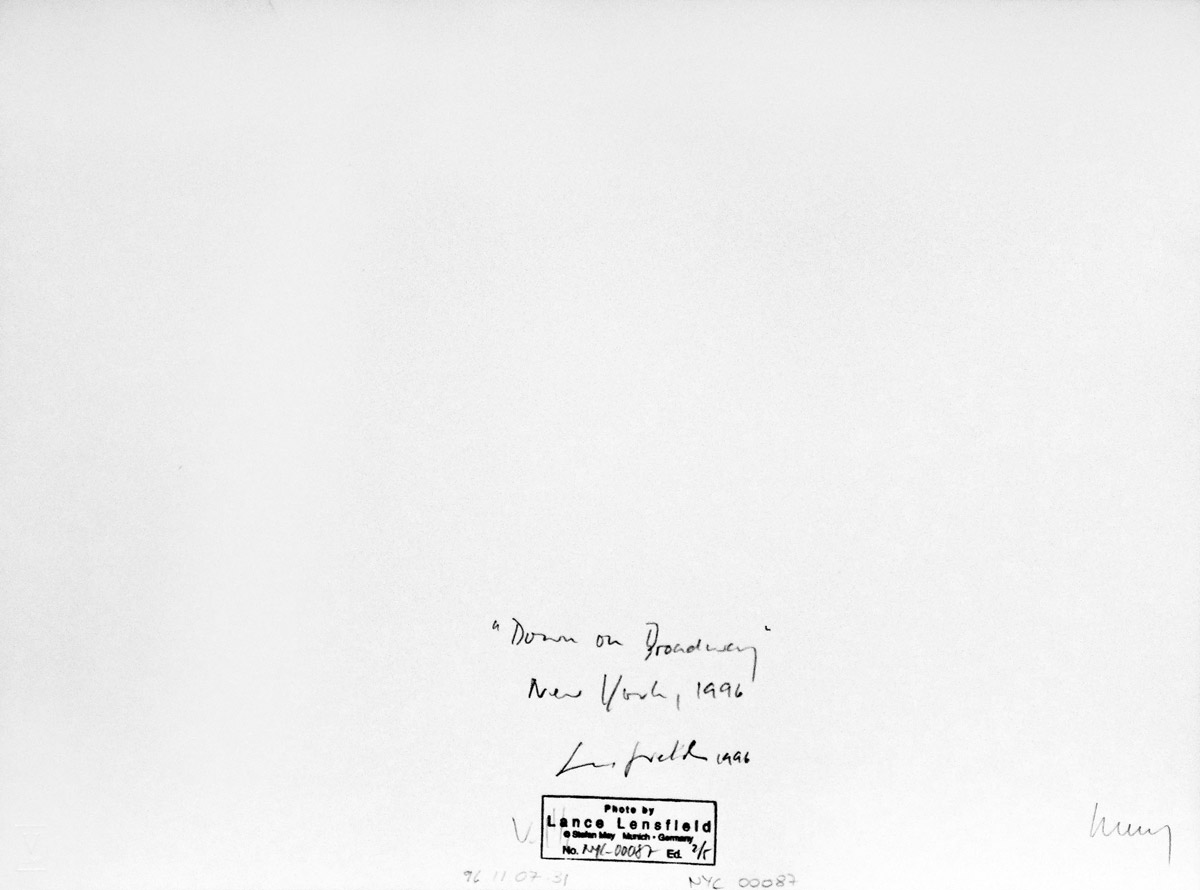 "Down on Broadway"
New York, 1996
Lensfield 1996
Photo by
Lance Lensfield
© Stefan May Munich • Germany
No. NYC-00087 Ed. 2/5
96 11 07-31
NYC 00087